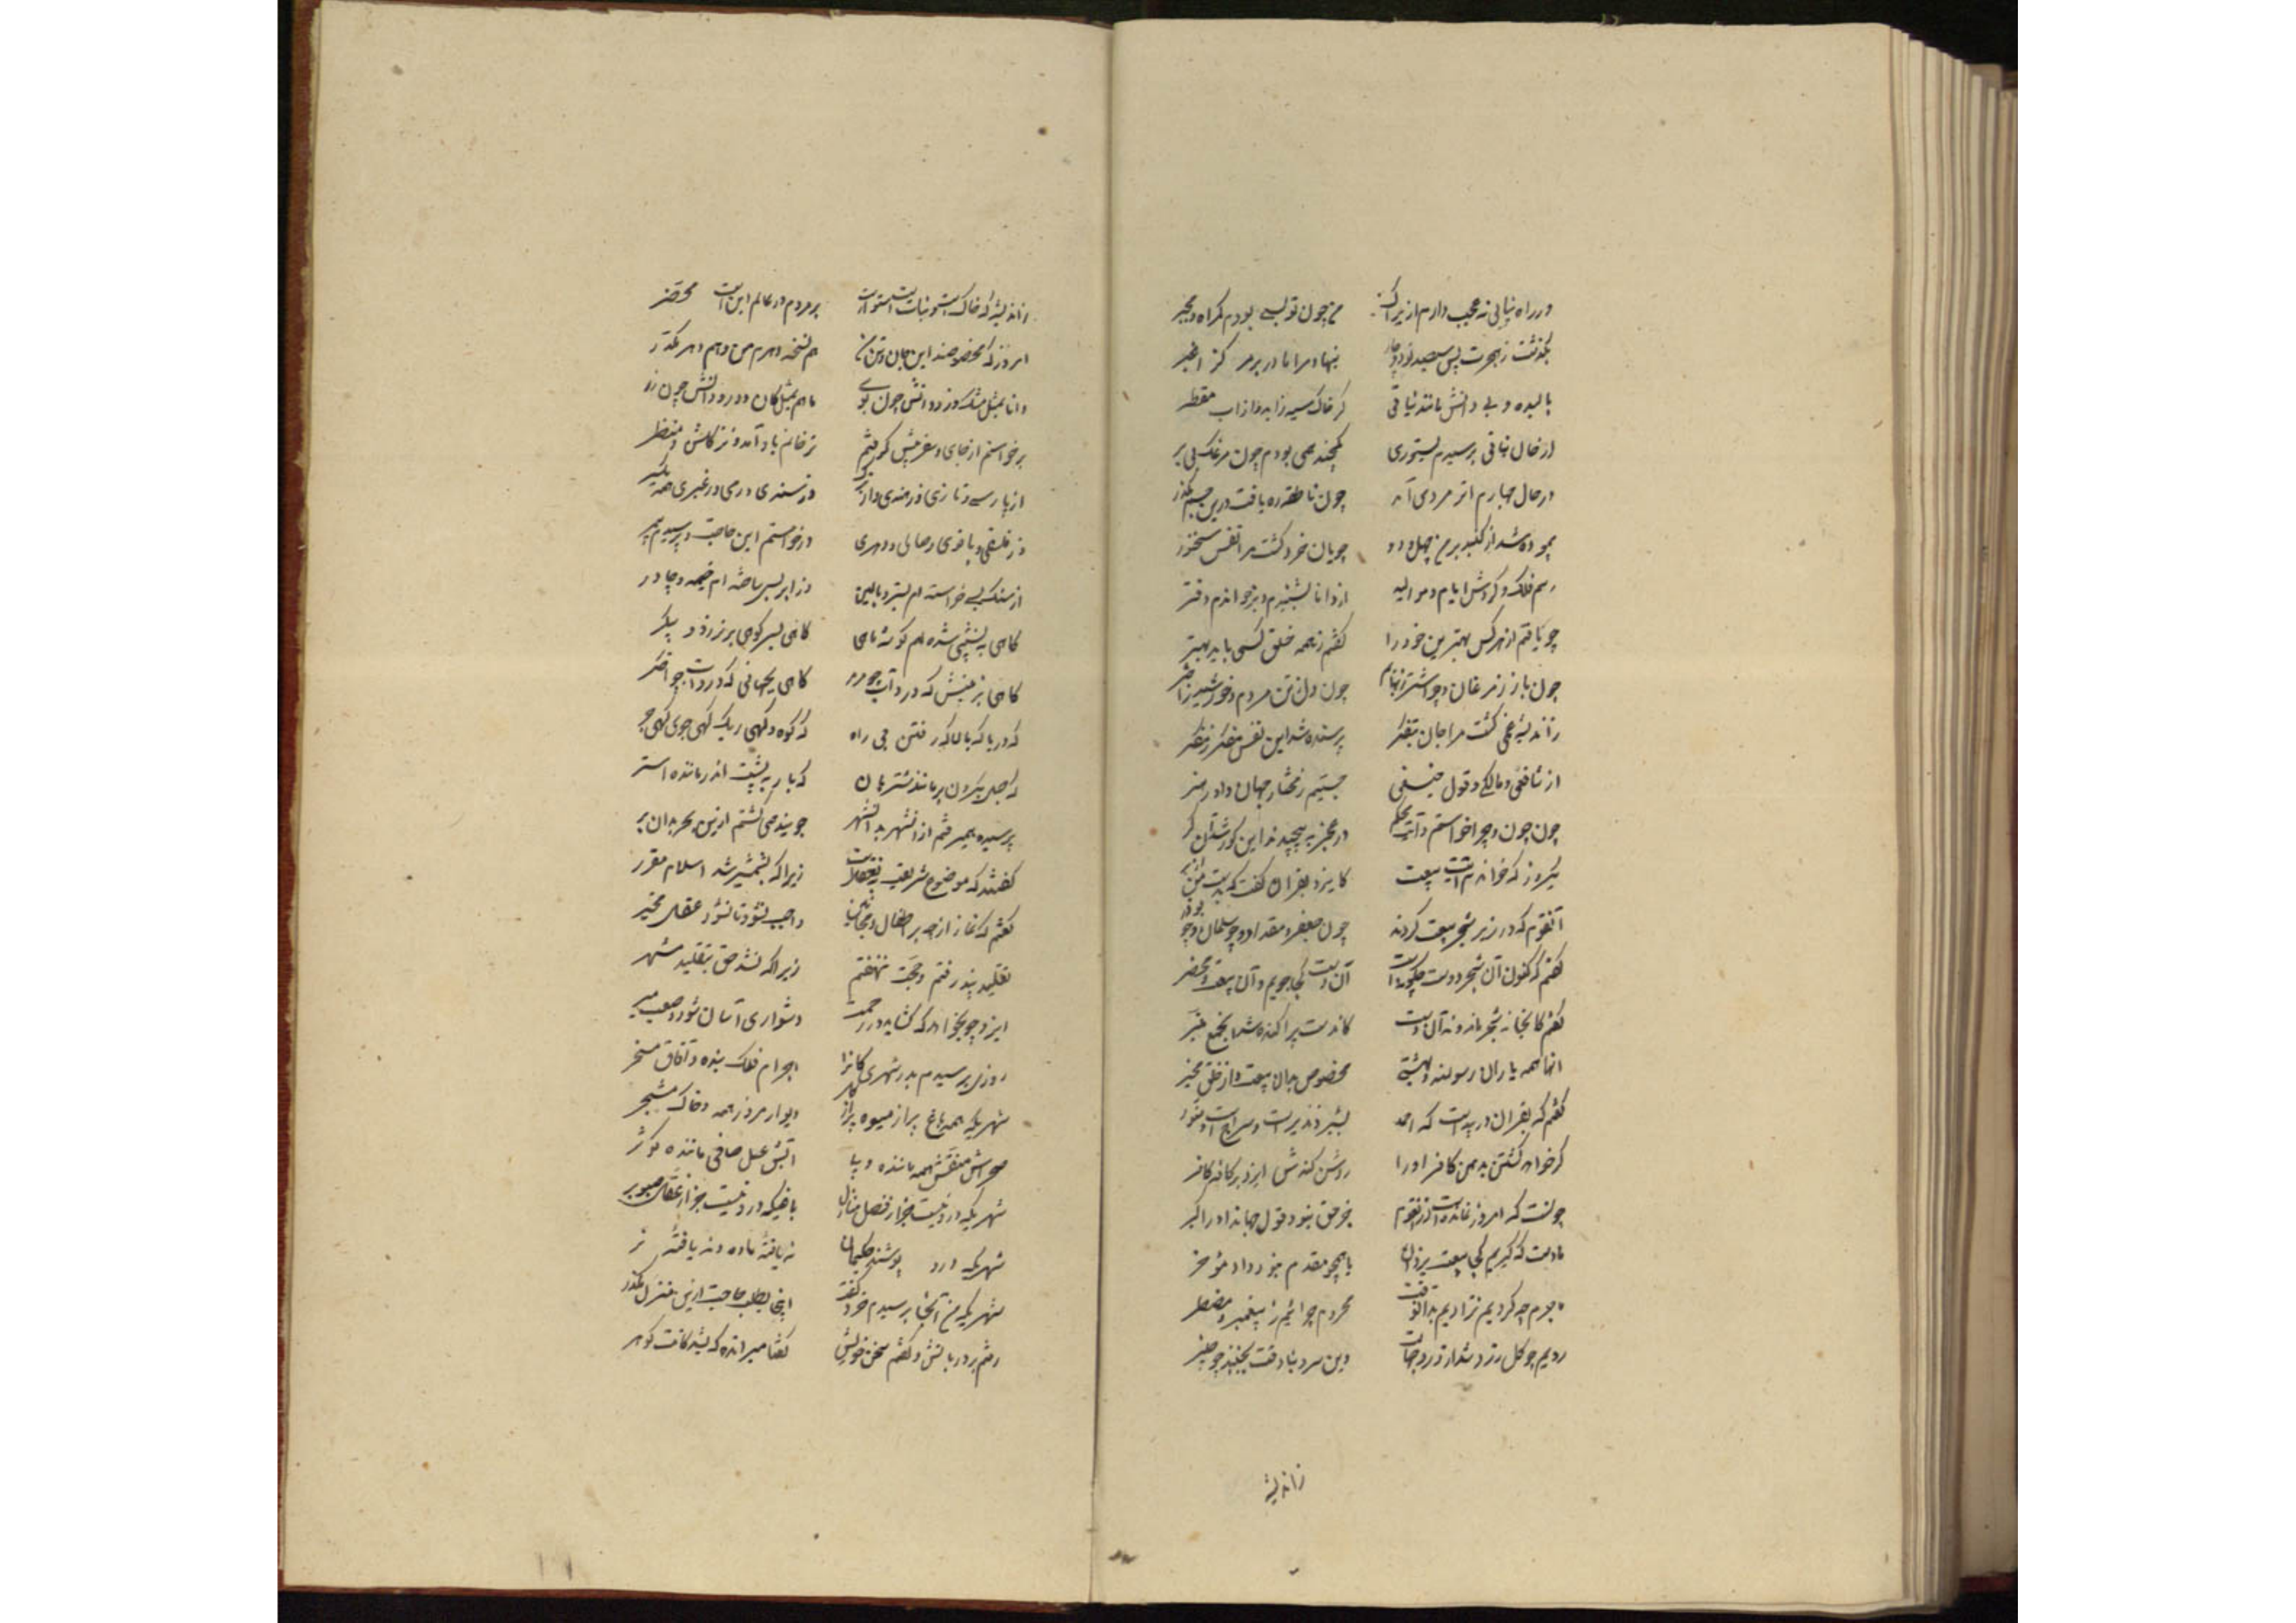 در راه نیابی نه عجب دارم ازیراک من چون تو بسی بودم گمراه و محیر
بگذشت ز هجرت پس سیصد نود و چار بنهاد مرا مادر بر مرکز اغبر
بالیده و بی دانش مانند نباتی کز خاک سیه زاید وز آب مقطر
از حال نباتی برسیدم بستوری یکچند همی بودم چون مرغک بی پر
در حال چهارم اثر مردمی آمد چون ناطقه ره یافت درین جسم مکدر
پیموده شد از گنبد بر من چهل و دو جویان خرد گشت مرا نفس سخنور
رسم فلک و گردش ایام و موالید از دانا بشنیدم و برخواندم دفتر
چون یافتم از هرکس بهتر من خود را گفتم ز همه خلق کسی باید بهتر
چون باز ز مرغان و چو اشتر ز بهایم چون دل ز تن مردم و خورشید ز اختر
ز اندیشه غمی گشت مرا جان بتفکر پرسنده شد این نفس مفکر ز مفکر
از شافعی و مالک و قول حنیفی جستیم ز مختار جهان داور رهبر
چون چون و چرا خواستم و آیت محکم در عجز به پیچیدند این کور شد آن کر
یکروز که خواندم آیت بیعت کایزد بقران گفت که بد دست من از بر
آنقوم که در زیر شجر بیعت کردند چون جعفر و مقداد و چو سلمان و چو بوذر
گفتم که کنون آن شجر و دست چگونه است آن دست کجا جویم و آن بیعت و محضر
گفتم که آنجا نه شجر ماند و نه آن دست کان دست پراکنده شد آن جمع مبتر
آنها همه یاران رسولند و بهشتی مخصوص بدان بیعت و از خلق مخیر
گفتم که بقران در پیداست که احمد بشیر و نذیر است و سراج است و منور
گر خواهد کشتن بدهن کافر او را روشن کندش ایزد بر کامه کافر
چونست که امروز نمانده است از آنقوم جز حق نبود قول جهاندار و راکبر
ما دست که گیریم کجا بیعت یزدان تا همچو مقدم نبود داد مؤخر
ما جرم چه کردیم نزادیم بدانوقت محروم چرائیم ز پیغمبر و مضطر
رویم چو گل زرد شد از درد جهالت وین سرو بناوقت بخمید چو چنبر
ز اندیشه
ز اندیشه که خاکست و نباتست و ستورست بر مردم در عالم اینست محضر
امروز که مخصوصند این جان و تن من هم نسخه دهرم من و هم دهر مکدر
دانا بمثل مشک و زو دانش چون بوی یا هم بمثل کان و درو دانش چون زر
برخواستم از جای و سفر پیش گرفتم نز خانم یاد آمد و نز گلشن و منظر
از پارسی و تازی و ز هندی و از ترک وز سندی و رومی و ز عبری همه یکسر
وز فلسفی و مانوی و صابی و دهری درخواستم این حاجت و پرسیدم بیمر
از سنگ بسی خواسته ام بستر و بالین وز ابر بسی ساخته ام خیمه و چادر
گاهی به نشیبی شده هم گوشه ماهی گاهی بسر کوهی برتر ز دو پیکر
گاهی بزمینیش که درو آب چو مرمر گاهی بجهانی که درو خاک چو اخگر
گه دریا گه بالا گه رفتن بی راه گه کوه و گهی ریگ گهی جوی گهی جر
گه حبل بگردن بر مانند شتربان گه بار به پشت اندر ماننده استر
پرسنده همی رفتم از آن شهر بدان شهر جوینده همی گشتم ازین بحر بدان بر
گفتند که موضوع شریعت نه بعقلست زیرا که بشمشیر شد اسلام مقرر
گفتم که نماز از چه بر اطفال و مجانین واجب نشود تا نشود عقل مخیر
تقلید نپذرفتم و حجت ننهفتم زیرا که نشد حق بتقلید مشهر
ایزد چو بخواهد که گشاید در رحمت دشواری آسان شود و صعب میسر
روزی برسیدم بدر شهری کانرا اجرام فلک بنده و آفاق مسخر
شهریکه همه باغ پر از میوه پر از دیوار مزمرد همه و خاک مشجر
صحراش منقش همه ماننده دیبا آبش عسل صافی ماننده کوثر
شهریکه درو نیست جز از فضل منازل باغیکه درو نیست جز از عقل صنوبر
شهریکه درو پوشند حکیمان نه بافته ماده و نه بافته نر
شهریکه من آنجا برسیدم خرد گفت اینجا بطلب حاجت ازین منزل مگذر
رفتم بر دربانش و گفتم سخن خویش گفتا مبر انده که بشد کانت گوهر